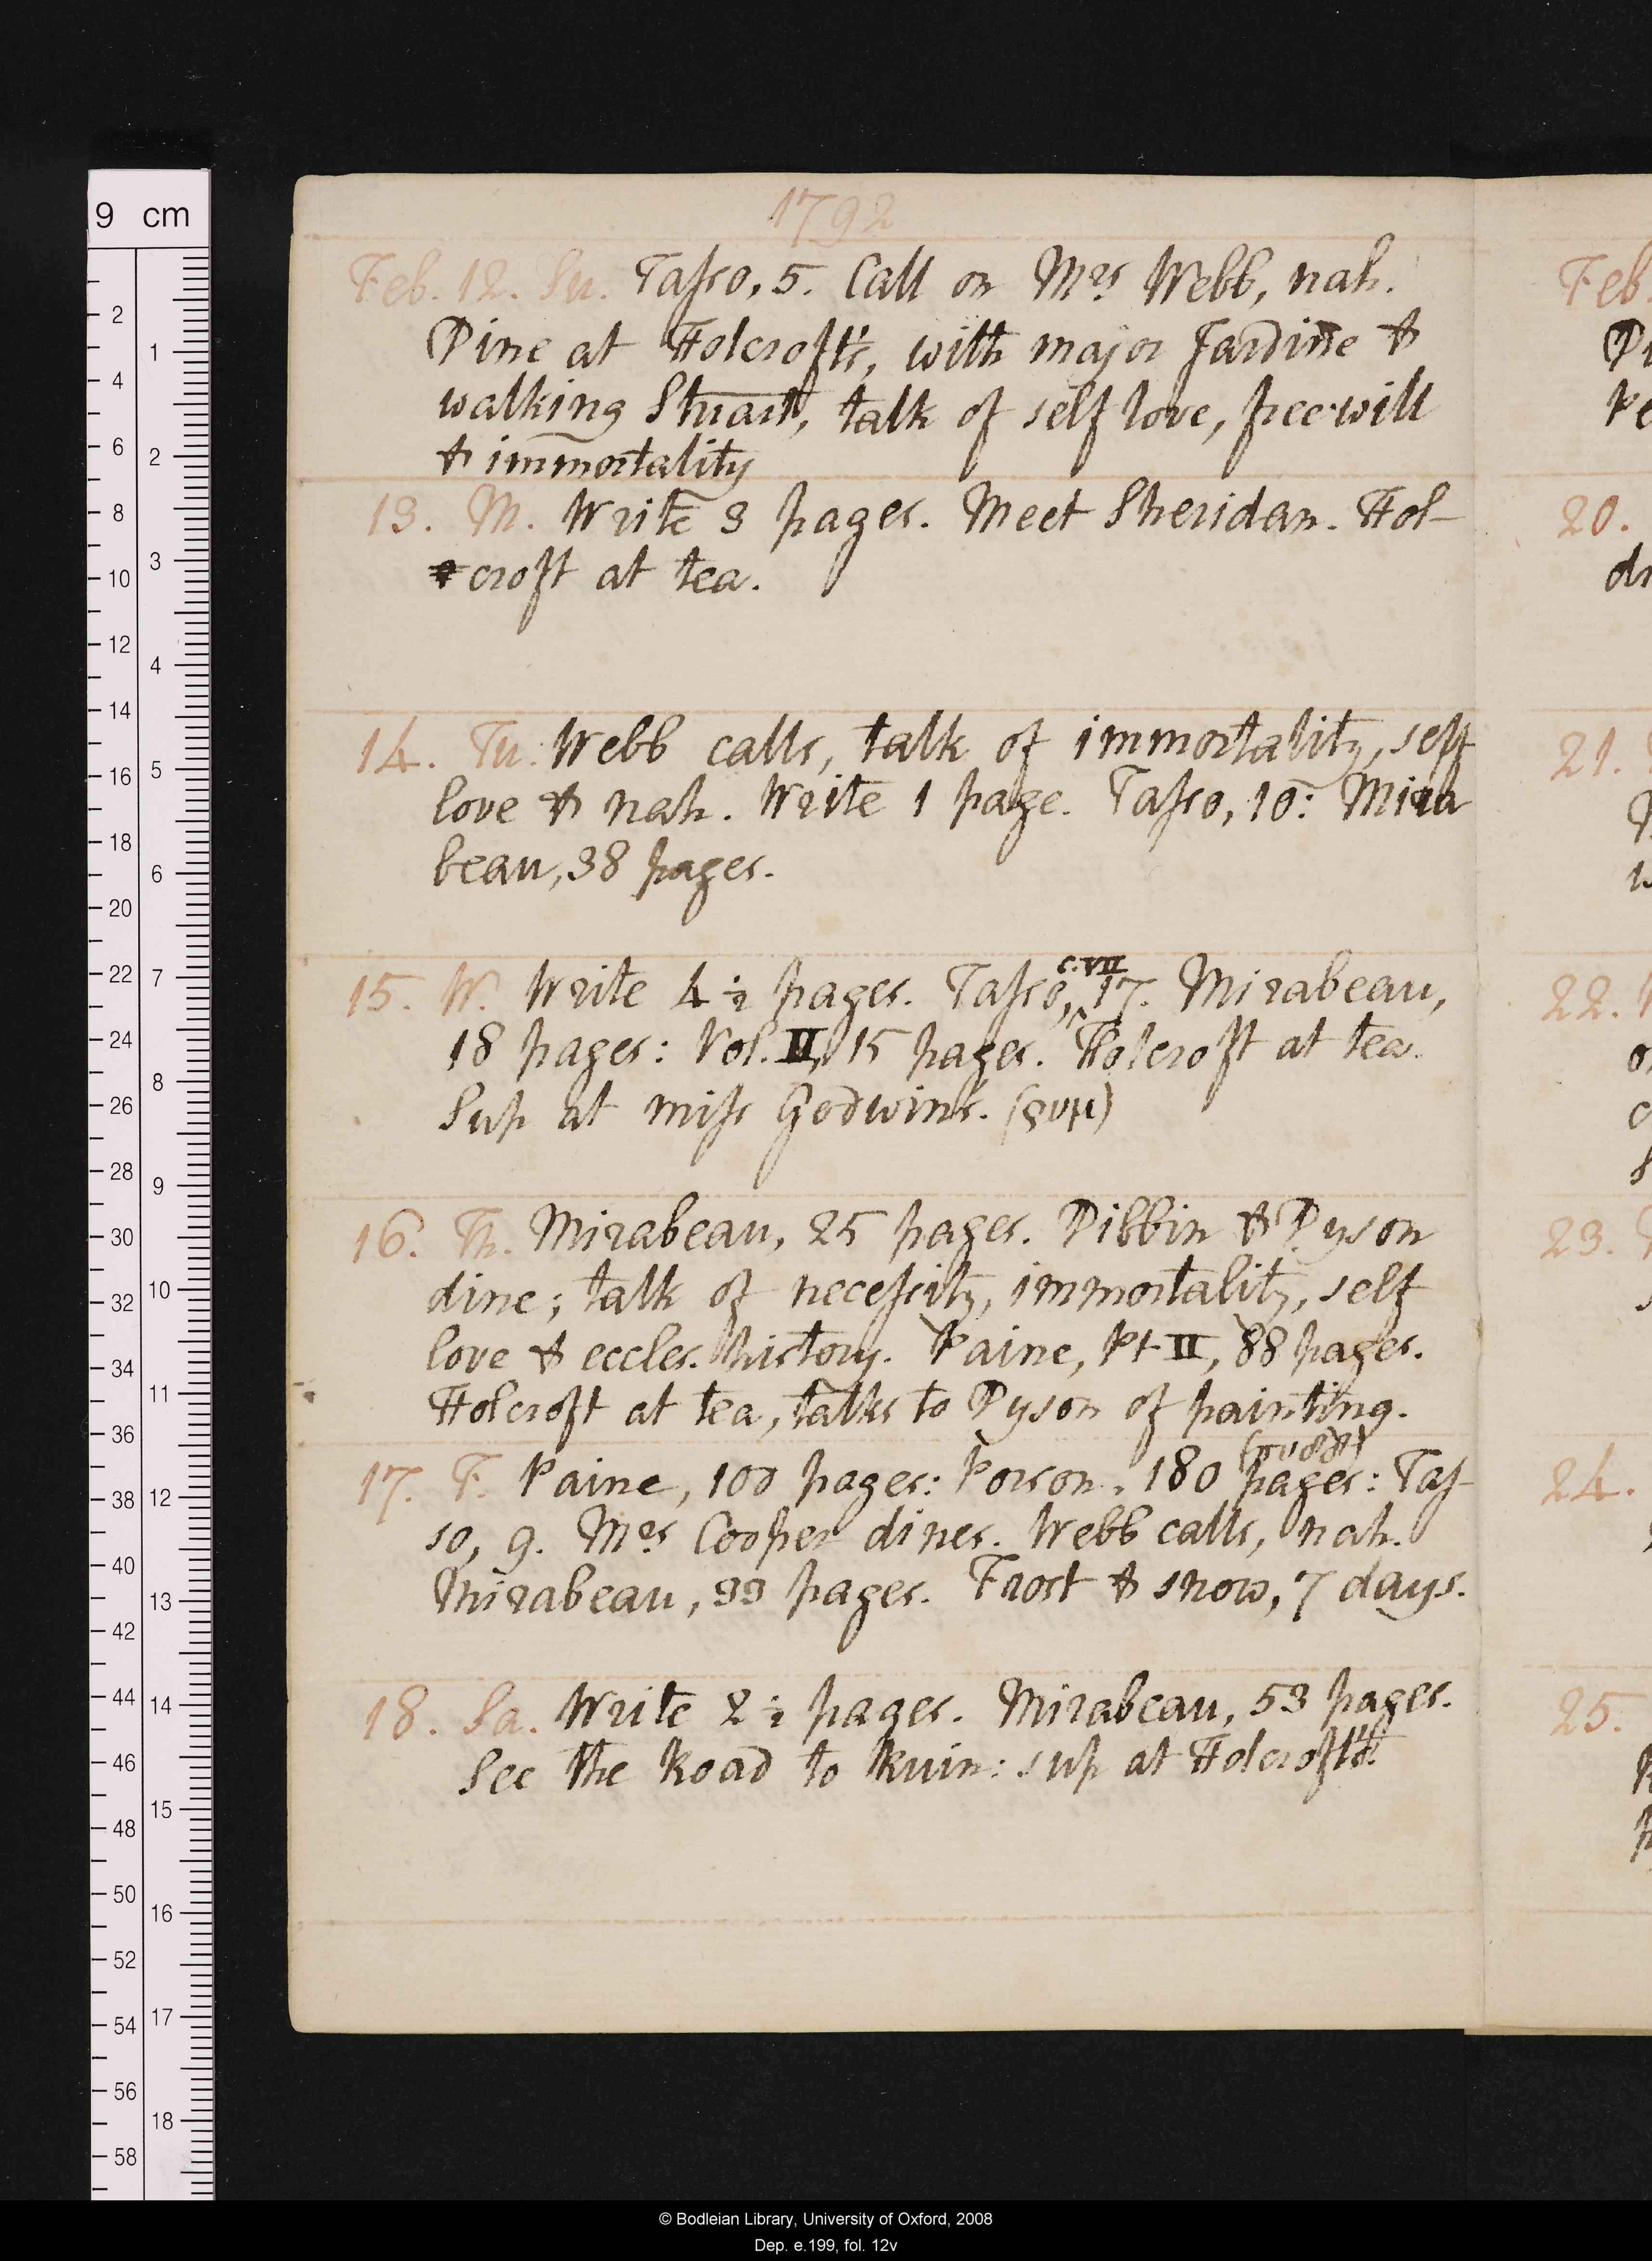 1792
Feb. 12. Su. Taſso, 5. Call on Mrs Webb, nah.
Dine at Holcroft's, with major Jardine &
walking Stuart, talk of self love, free will
& immortality
13. M. Write 3 pages. Meet Sheridan. Hol-
croft at tea.
14. Tu. Webb calls, talk of immortality, self
love & nah. Write 1 page. Taſso, 10: Mira
beau, 38 pages.
c. VII
15. W. Write 4 ½ pages. Taſso, 17. Mirabeau,
18 pages: Vol. II, 15 pages. Holcroft at tea.
Sup at miſs Godwin's.
16. Th. Mirabeau, 25 pages. Dibbin & Dyson
dine; talk of neceſsity, immortality, self
love & eccles. history. Paine, Pt II, 88 pages.
Holcroft at tea, talks to Dyson of painting.
17. F. Paine, 100 pages: Porson, 180 pages: Taſ-
so, 9. Mrs Cooper dines. Webb calls, nah.
Mirabeau, 33 pages. Frost & snow, 7 days.
18. Sa. Write 2 ½ pages. Mirabeau, 53 pages.
See the Road to Ruin: sup at Holcroft's.
Feb.
20.
21.
22.
23.
24.
25.
9 cm
2 4 6 8 10 12 14 16 18 20 22 24 26 28 30 32 34 36 38 40 42 44 46 48 50 52 54 56 58
1 2 3 4 5 6 7 8 9 10 11 12 13 14 15 16 17 18
© Bodleian Library, University of Oxford, 2008
Dep. e.199, fol. 12v